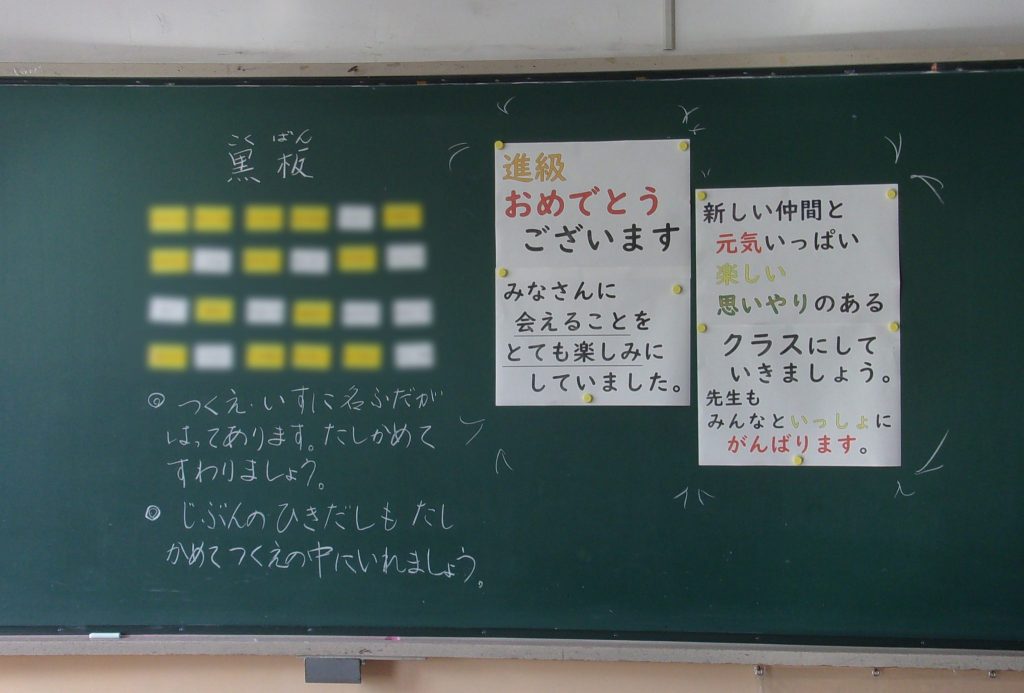 こくばん
黒板
◎つくえ・いすに名ふだが
はってあります。たしかめて
すわりましょう。
◎じぶんのひきだしもたし
かめてつくえの中にいれましょう。
進級
おめでとう
ございます
みなさんに
会えることを
とても楽しみに
していました。
新しい仲間と
元気いっぱい
楽しい
思いやりのある
クラスにして
いきましょう。
先生も
みんなといっしょに
がんばります。